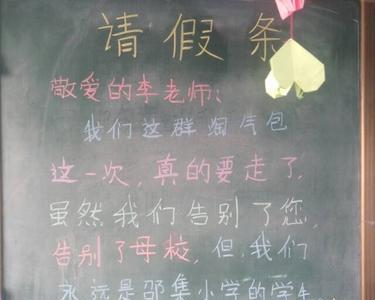 请假条
敬爱的李老师：
我们这群淘气包
这一次，真的要走了，
虽然我们告别了您，
告别了母校，但，我们
永远是邵集小学的学生